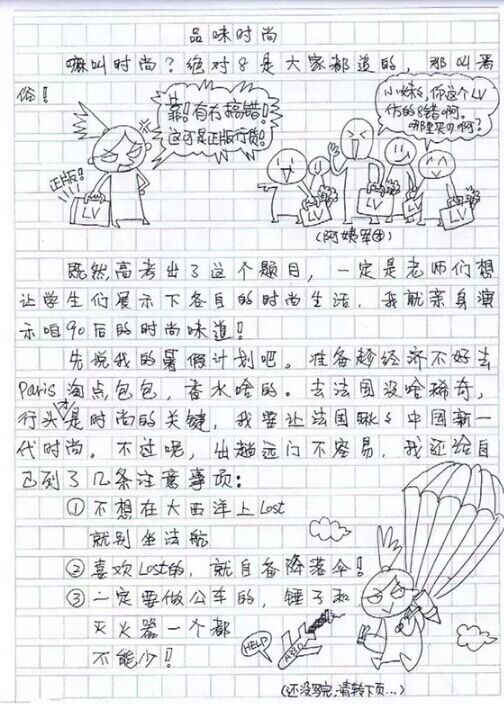 品味时尚
嘛叫时尚？绝对8是大家都追的，那叫屌
俗！
靠！有冇搞错！
这可是正版行货！
正版！
LV
小妹8,你这个LV
仿的8错啊。
哪里买D啊？
LV
LV
LV
LV
(阿姨军团)
既然高考出了这个题目，一定是老师们想
让学生们展示下各自的时尚生活，我就亲身演
示咱90后的时尚味道！
先说我的暑假计划吧。准备趁经济不好去
Paris淘点包包，香水啥的。去法国没啥稀奇，
行头才是时尚的关键，我要让法国瞅瞅中国新一
代时尚。不过呢，出趟远门不容易，我还给自
己列了几条注意事项：
①不想在大西洋上Lost
就别坐法航
②喜欢Lost的，就自备降落伞！
③一定要做公车的，锤子和
灭火器一个都
不能少！
HELP
A330
(还没完,请转下页...)